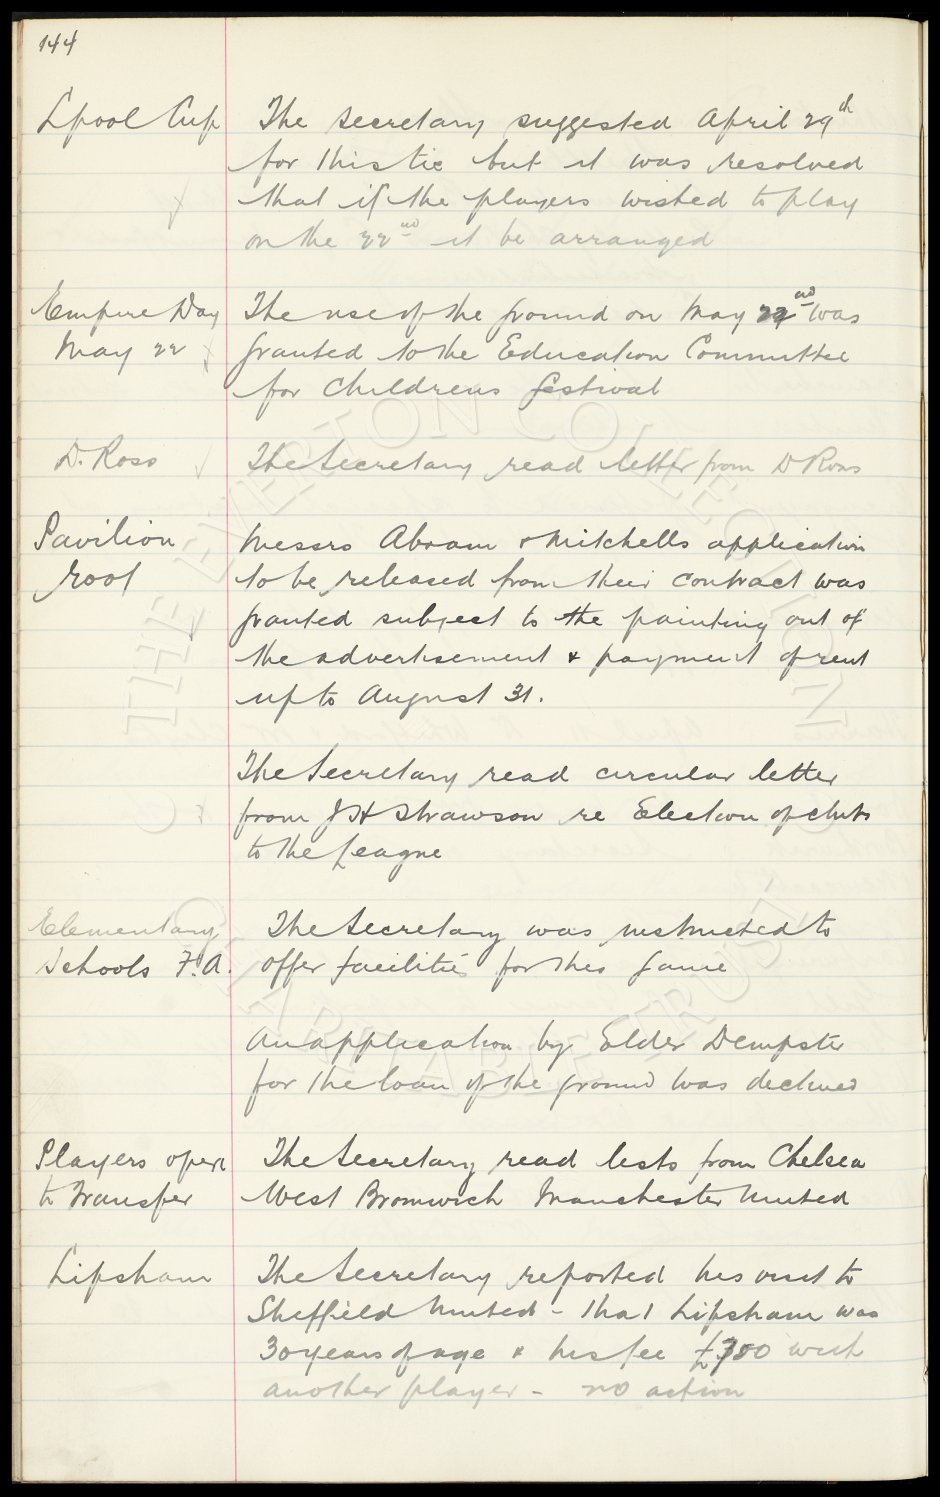 144
Lpool Cup The Secretary suggested April 29th
for this tie but it was resolved
that if the players wished to play
on the 22nd it be arranged
Empire Day The use of the ground on May 22nd was
May 22 granted to the Education Committee
for Childrens festival
D. Ross The Secretary read letter from D Ross
Pavilion Messrs Abram & Mitchells application
roof to be released from their contract was
granted subject to the painting out of
the advertisement & payment of rent
up to August 31.
The Secretary read circular letter
from J H Strawson re Election of clubs
to the League
Elementary The Secretary was instructed to
Schools F.A. offer facilities for this game
An application by Elder Dempster
for the loan of the ground was declined
Players open The Secretary read lists from Chelsea
to Transfer West Bromwich Manchester United
Lipsham The Secretary reported his visit to
Sheffield United - that Lipsham was
30 years of age & his fee £ with
another player - no action
THE EVERTON COLLECTION
CHARITABLE TRUST